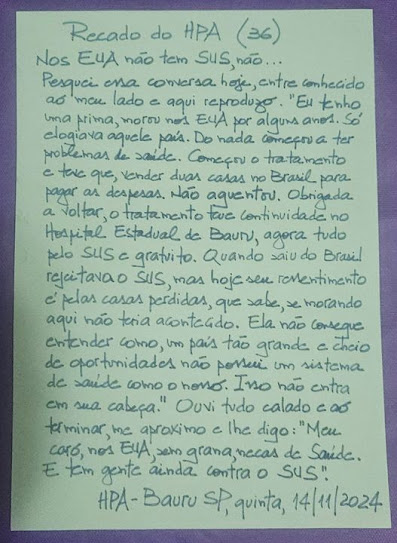 Recado do HPA (36)
Nos EUA não tem SUS, não...
Pesquei essa conversa hoje, entre conhecido
ao meu lado e aqui reproduzo. "Eu tenho
uma prima, morou nos EUA por alguns anos. Só
elogiava aquele país. Do nada começou a ter
problemas de saúde. Começou o tratamento
e teve que, vender duas casas no Brasil para
pagar as despesas. Não aguentou. Obrigada
a voltar, o tratamento teve continuidade no
Hospital Estadual de Bauru, agora tudo
pelo SUS e gratuito. Quando saiu do Brasil
rejeitava o SUS, mas hoje seu ressentimento
é pelas casas perdidas, que sabe, se morando
aqui não teria acontecido. Ela não consegue
entender como, um país tão grande e cheio
de oportunidades não possui um sistema
de saúde como o nosso. Isso não entra
em sua cabeça." Ouvi tudo calado e ao
terminar, me aproximo e lhe digo: "Meu
caro, nos EUA, sem grana, necas de Saúde.
E tem gente ainda contra o SUS".
HPA - Bauru SP, quinta, 14/11/2024